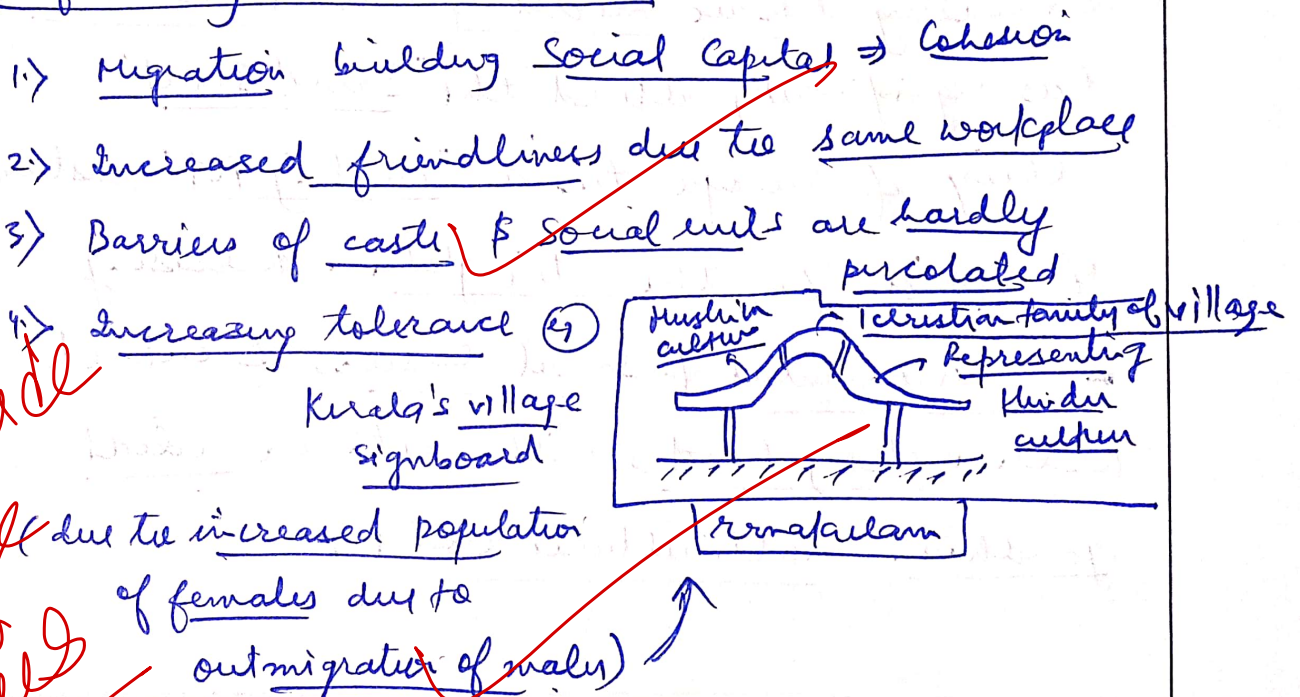 1.) Migration building Social Capital ⇒ Cohesion
2.) Increased friendliness due to same workplace
3.) Barriers of caste & Social evils are hardly
percolated
4.) Increasing tolerance eg
Kerala's village
signboard
Muslim
culture
Christian family of village
Representing
Hindu
culture
(due to increased population
of females due to
outmigration of males)